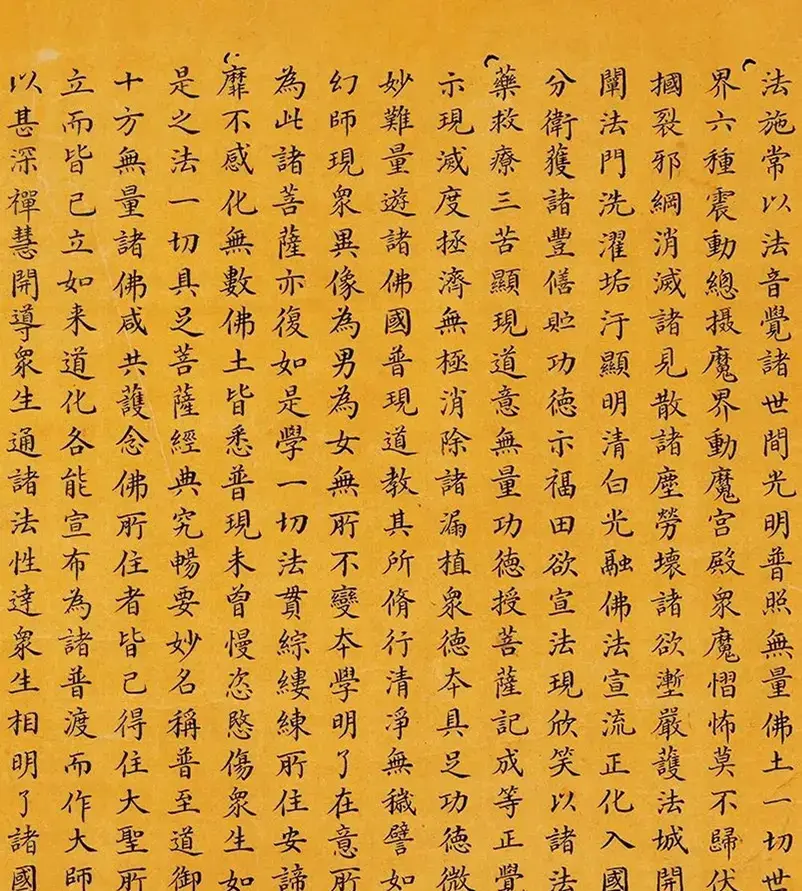 法施常以法音覺諸世間光明普照無量佛土一切世
界六種震動總摄魔界動魔宮殿衆魔慴怖莫不歸伏
摑裂邪綱消滅諸見散諸塵勞壊諸欲壍嚴護法城開
闡法門洗濯垢汙顯明清白光融佛法宣流正化入國
分衛獲諸豐僐貯功德示福田欲宣法現欣笑以諸法
藥救療三苦顯現道意無量功德授菩薩記成等正覺
示現滅度拯濟無極消除諸漏植衆德夲具足功德微
妙難量遊諸佛國普現道教其所脩行清淨無穢譬如
幻師現衆異像為男為女無所不變夲學明了在意所
為此諸菩薩亦復如是學一切法貫綜縷練所住安諦
靡不感化無數佛土皆悉普現未曾慢恣愍傷衆生如
是之法一切具足菩薩經典究暢要妙名稱普至道御
十方無量諸佛咸共護念佛所住者皆已得住大聖所
立而皆已立如来道化各能宣布為諸普渡而作大師
以甚深禪慧開導衆生通諸法性達衆生相明了諸國